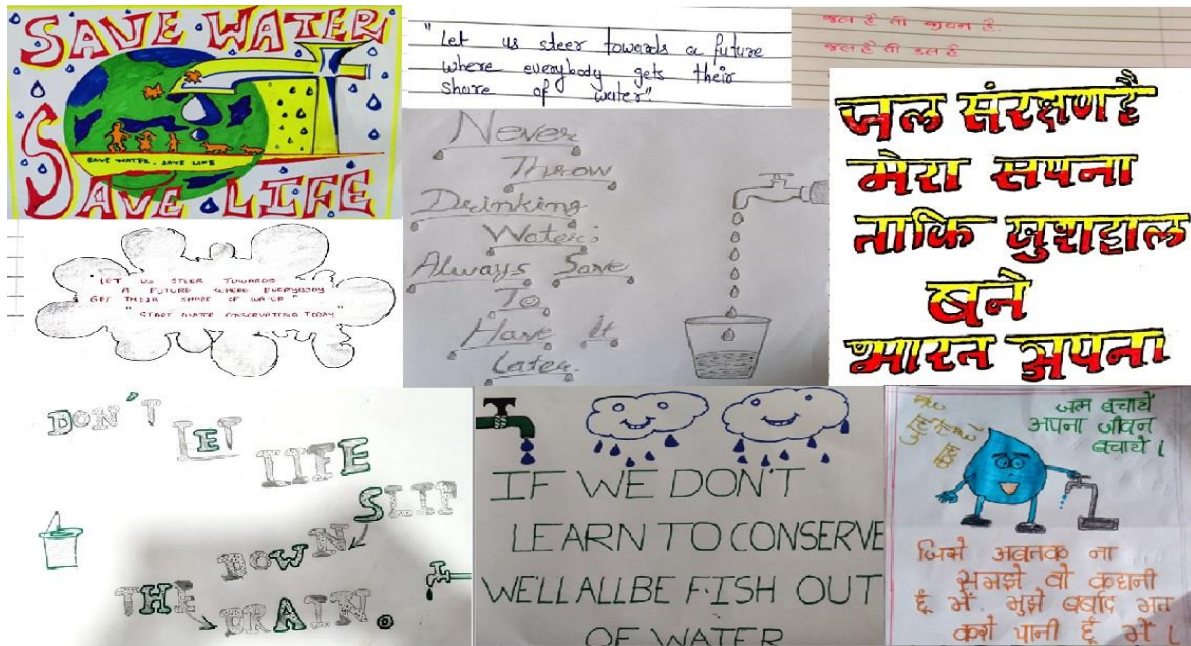 SAVE WATER
SAVE WATER. SAVE LIFE
SAVE LIFE
"Let us steer towards a future
where everybody gets their
share of water".
जल है तो जीवन है.
जल है तो कल है
जल संरक्षण है
मेरा सपना
ताकि खुशहाल
बने
भारत अपना
LET US STEER TOWARDS
A FUTURE WHERE EVERYBODY
GET THEIR SHARE OF WATER"
"START WATER TODAY"
Never
Throw
Drinking
Water;
Always Save
To
Have It
Later.
DON'T
LET
LIFE
SLIP
DOWN
THE
DRAIN.
IF WE DON'T
LEARN TO CONSERVE
WELL ALL BE FISH OUT
OF WATER
जल बचायें
अपना जीवन
बचायें।
जिसे अबतक ना
समझे वो कहानी
हूँ मैं. मुझे बर्बाद मत
करो पानी हूँ मैं।